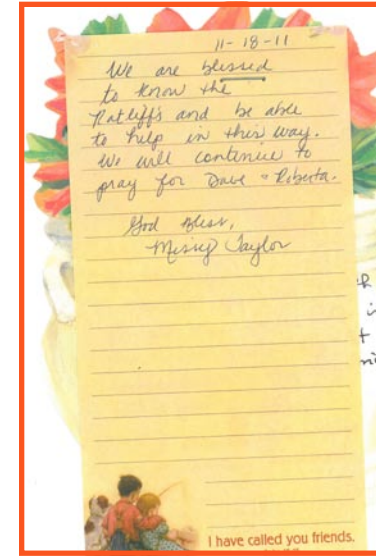 11-18-11
We are blessed
to know the
Ratliff's and be able
to help in this way.
We will continue to
pray for Dave & Roberta.
God Bless,
Missy Taylor
I have called you friends.